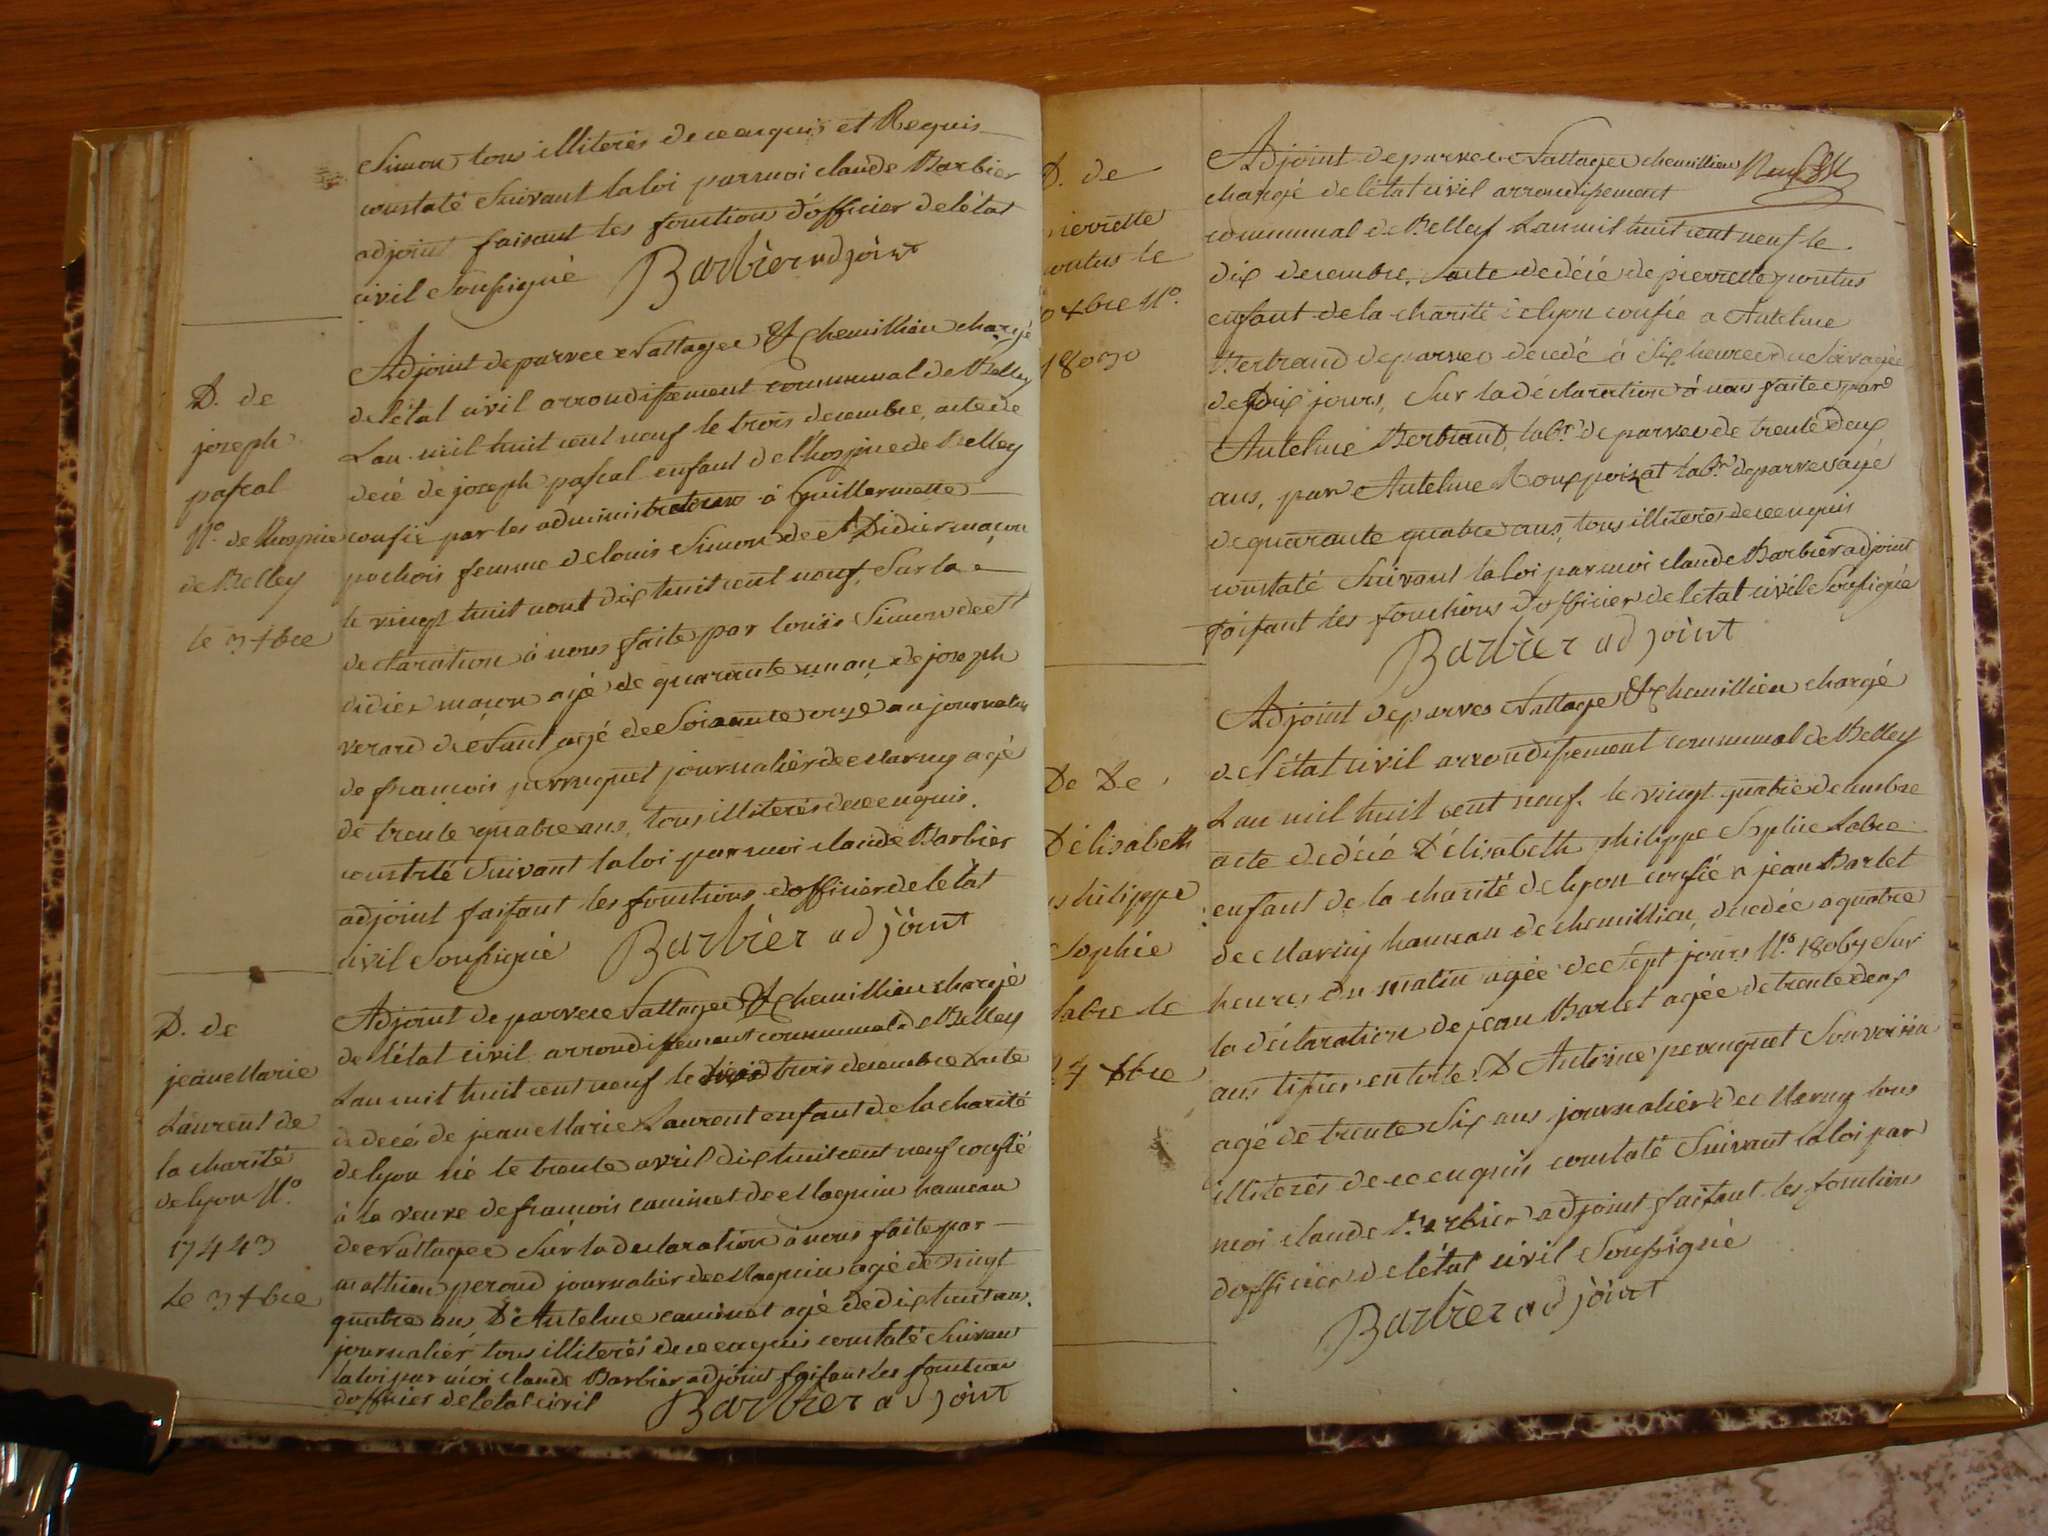 Simon tous illiterés de ce enquis et Requis
constaté Suivant la loi par moi claude Barbier
adjoint faisant les fonction d'officier de létat
civil Soussigné Barbier adjoint
D. de
joseph
pascal
N.o de lhospice
de Belley
le 3 xbre
Adjoint de parvee Nattagee & chemillieu chargé
de létat civil arrondissement communal de Belley
Lan mil huit cent neuf le trois decembre, acte de
decé de joseph pascal enfant de lhospice de Belley
confié par les administrateurs à Guillermette
pochois femme de louis Simon de St Didier maçon
le vingt huit aout dix huit cent neuf, Sur la
declaration à nous faite par louis Simon de St
didier maçon agé de quarante un an, de joseph
verard de agé de Soixante onze an journalier
de francois perruquet journalier de Marny agé
de trente quatre ans, tous illiterés de ce enquis.
constaté Suivant la loi par moi claude Barbier
adjoint faisant les fonctions d'officier de létat
civil Soussigné Barbier adjoint
D. de
jean Marie
Laurent de
la charité
de lyon N.o
17443
Le 3 xbre
Adjoint de parvee Nattagee & chemillieu chargé
de létat civil arrondissement communal de Belley
Lan mil huit cent neuf le trois decembre acte
de decé de jean Marie Laurent enfant de la charité
de lyon né le trente avril dix huit cent neuf confié
à la veuve de francois caminet de Magnin hameau
de Nattagee Sur la declaration à nous faite par
mathieu peroud journalier de Magnin agé de vingt
quatre ans D'Antelme caminet agé de dix huit ans.
journalier tous illiterés de ce enquis constaté Suivant
la loi par moi claude Barbier adjoint faisant les fonction
dofficier de létat civil Barbier adjoint
D. de
pierrette
pontus le
10 xbre N.o
18030
Adjoint de parvee Nattagee chemillieu
chargé de létat civil arrondissement
communal de Belley Lan mil huit cent neuf le
dix decembre. acte de décé de pierrette pontus
enfant de la charité de lyon confié a Antelme
Bertrand de parvee decedé à Six heure du Soir agée
de Dix jours, Sur la déclaration à nous faite par
Antelme Bertrand labr. de parvee de trente deux
ans, par Antelme Roux poizat labr. de parvee agé
de quarante quatre ans, tous illiterés de ce enquis
constaté Suivant la loi par moi claude Barbier adjoint
faisant les fonctions d'officier de létat civil Soussigné
Barbier adjoint
De De
Délisabeth
philippe
Sophie
labre le
24 xbre
Adjoint de parves Nattagee & chemillieu chargé
de létat civil arrondissement communal de Belley
Lan mil huit cent neuf. le vingt quatre decembre
acte de décé D'élisabeth philippe Sophie Labre
enfant de la charité de lyon confié a jean Barlet
de Marny hameau de chemillieu, decedée a quatre
heures du matin agée de Sept jours N.o 18067 Sur
la déclaration de jean Barlet agée de trente deux
ans tisier en toile. D'Antoine peruquet Son voisin
agé de trente Six ans journalier de Marny tous
illiterés de ce enquis constaté Suivant la loi par
moi claude Barbier adjoint faisant les fonctions
dofficier de létat civil Soussigné
Barbier adjoint